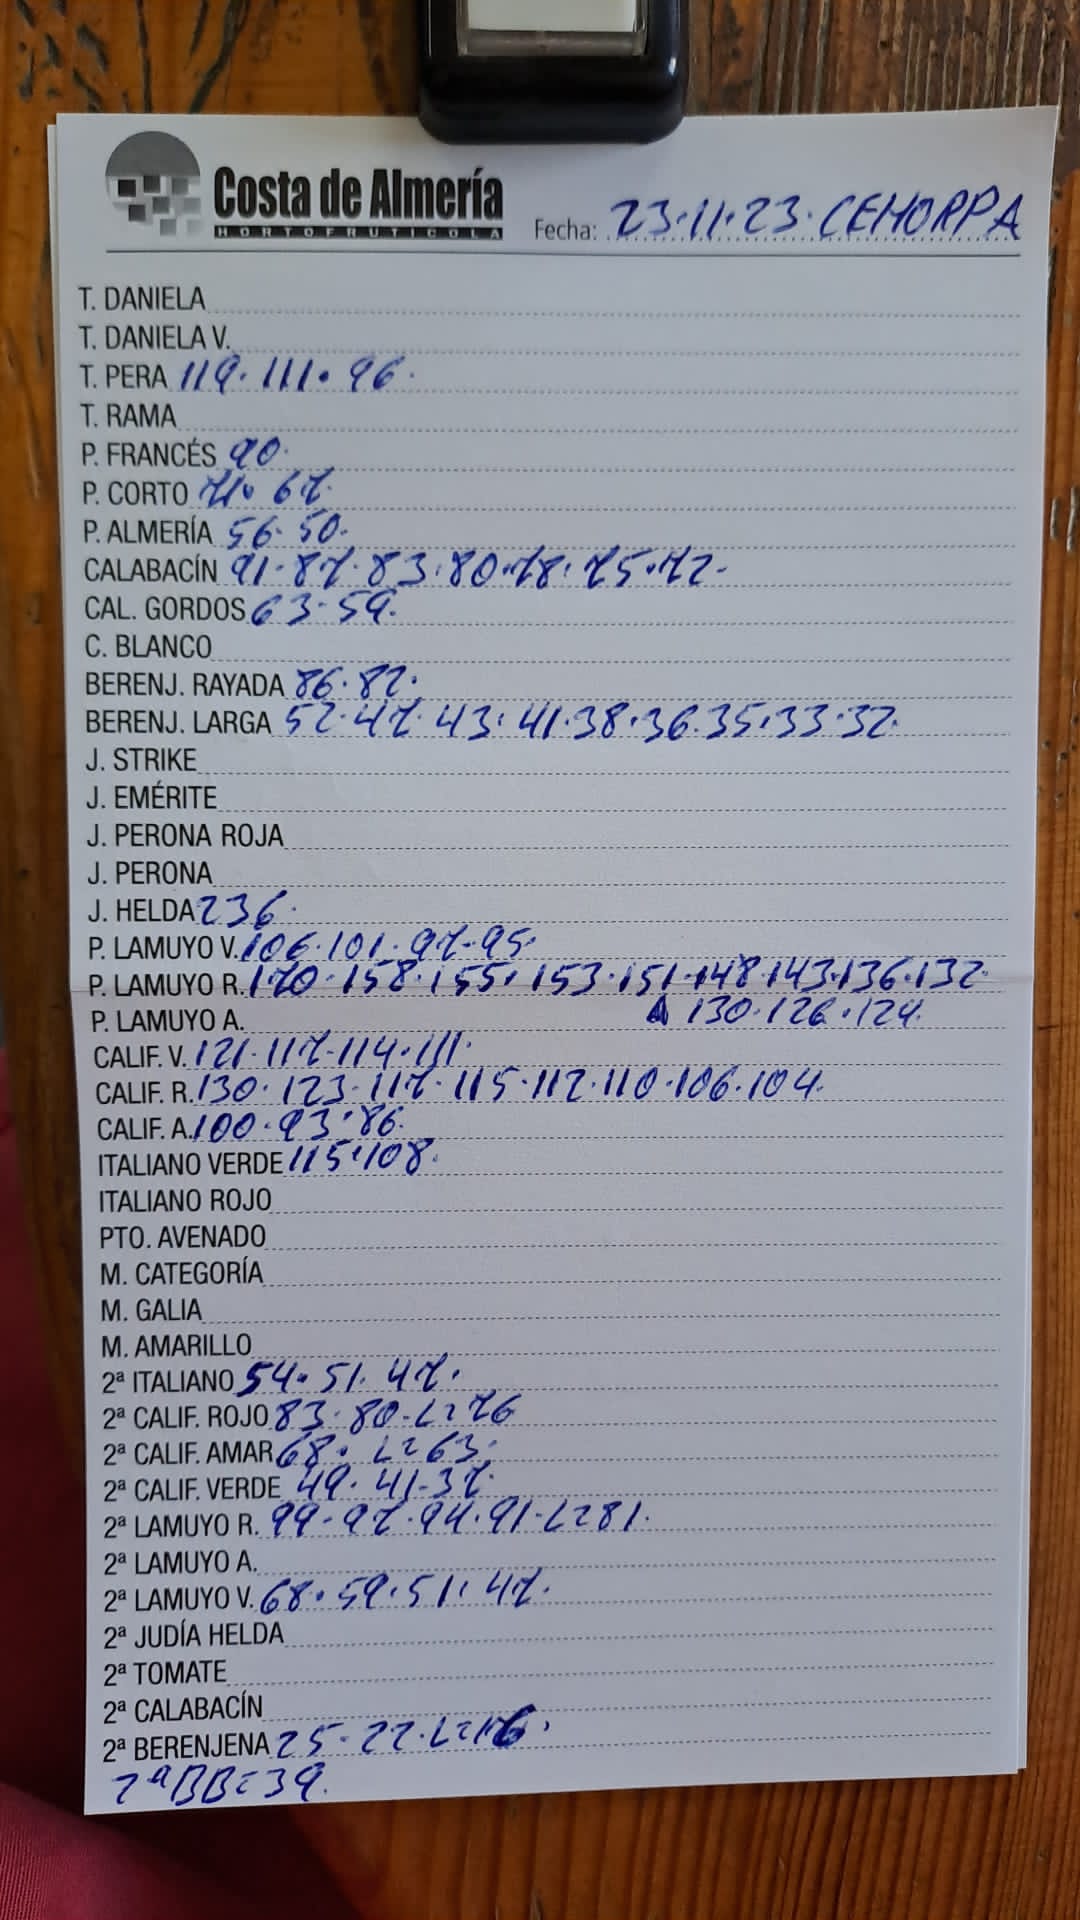 Costa de Almería
HORTOFRUTICOLA
Fecha: 23.11.23. CEHORPA
T. DANIELA
T. DANIELA V.
T. PERA 119. 111. 96.
T. RAMA
P. FRANCÉS 90.
P. CORTO 71. 67.
P. ALMERÍA 56. 50.
CALABACÍN 91. 87. 83. 80. 78. 75. 72.
CAL. GORDOS 63. 59.
C. BLANCO
BERENJ. RAYADA 86. 82.
BERENJ. LARGA 52. 47. 43. 41. 38. 36. 35. 33. 32.
J. STRIKE
J. EMÉRITE
J. PERONA ROJA
J. PERONA
J. HELDA 236.
P. LAMUYO V. 106. 101. 97. 95.
P. LAMUYO R. 170. 158. 155. 153. 151. 148. 143. 136. 132
P. LAMUYO A. 130. 126. 124.
CALIF. V. 121. 117. 114. 111.
CALIF. R. 130. 123. 117. 115. 112. 110. 106. 104.
CALIF. A. 100. 93. 86.
ITALIANO VERDE 115. 108.
ITALIANO ROJO
PTO. AVENADO
M. CATEGORÍA
M. GALIA
M. AMARILLO
2ª ITALIANO 54. 51. 47.
2ª CALIF. ROJO 83. 80. L=76
2ª CALIF. AMAR 68. L=63.
2ª CALIF. VERDE 49. 41. 37.
2ª LAMUYO R. 99. 97. 94. 91. L=81.
2ª LAMUYO A.
2ª LAMUYO V. 68. 59. 51. 47.
2ª JUDÍA HELDA
2ª TOMATE
2ª CALABACÍN
2ª BERENJENA 25. 22. L=16.
2ª BB=39.